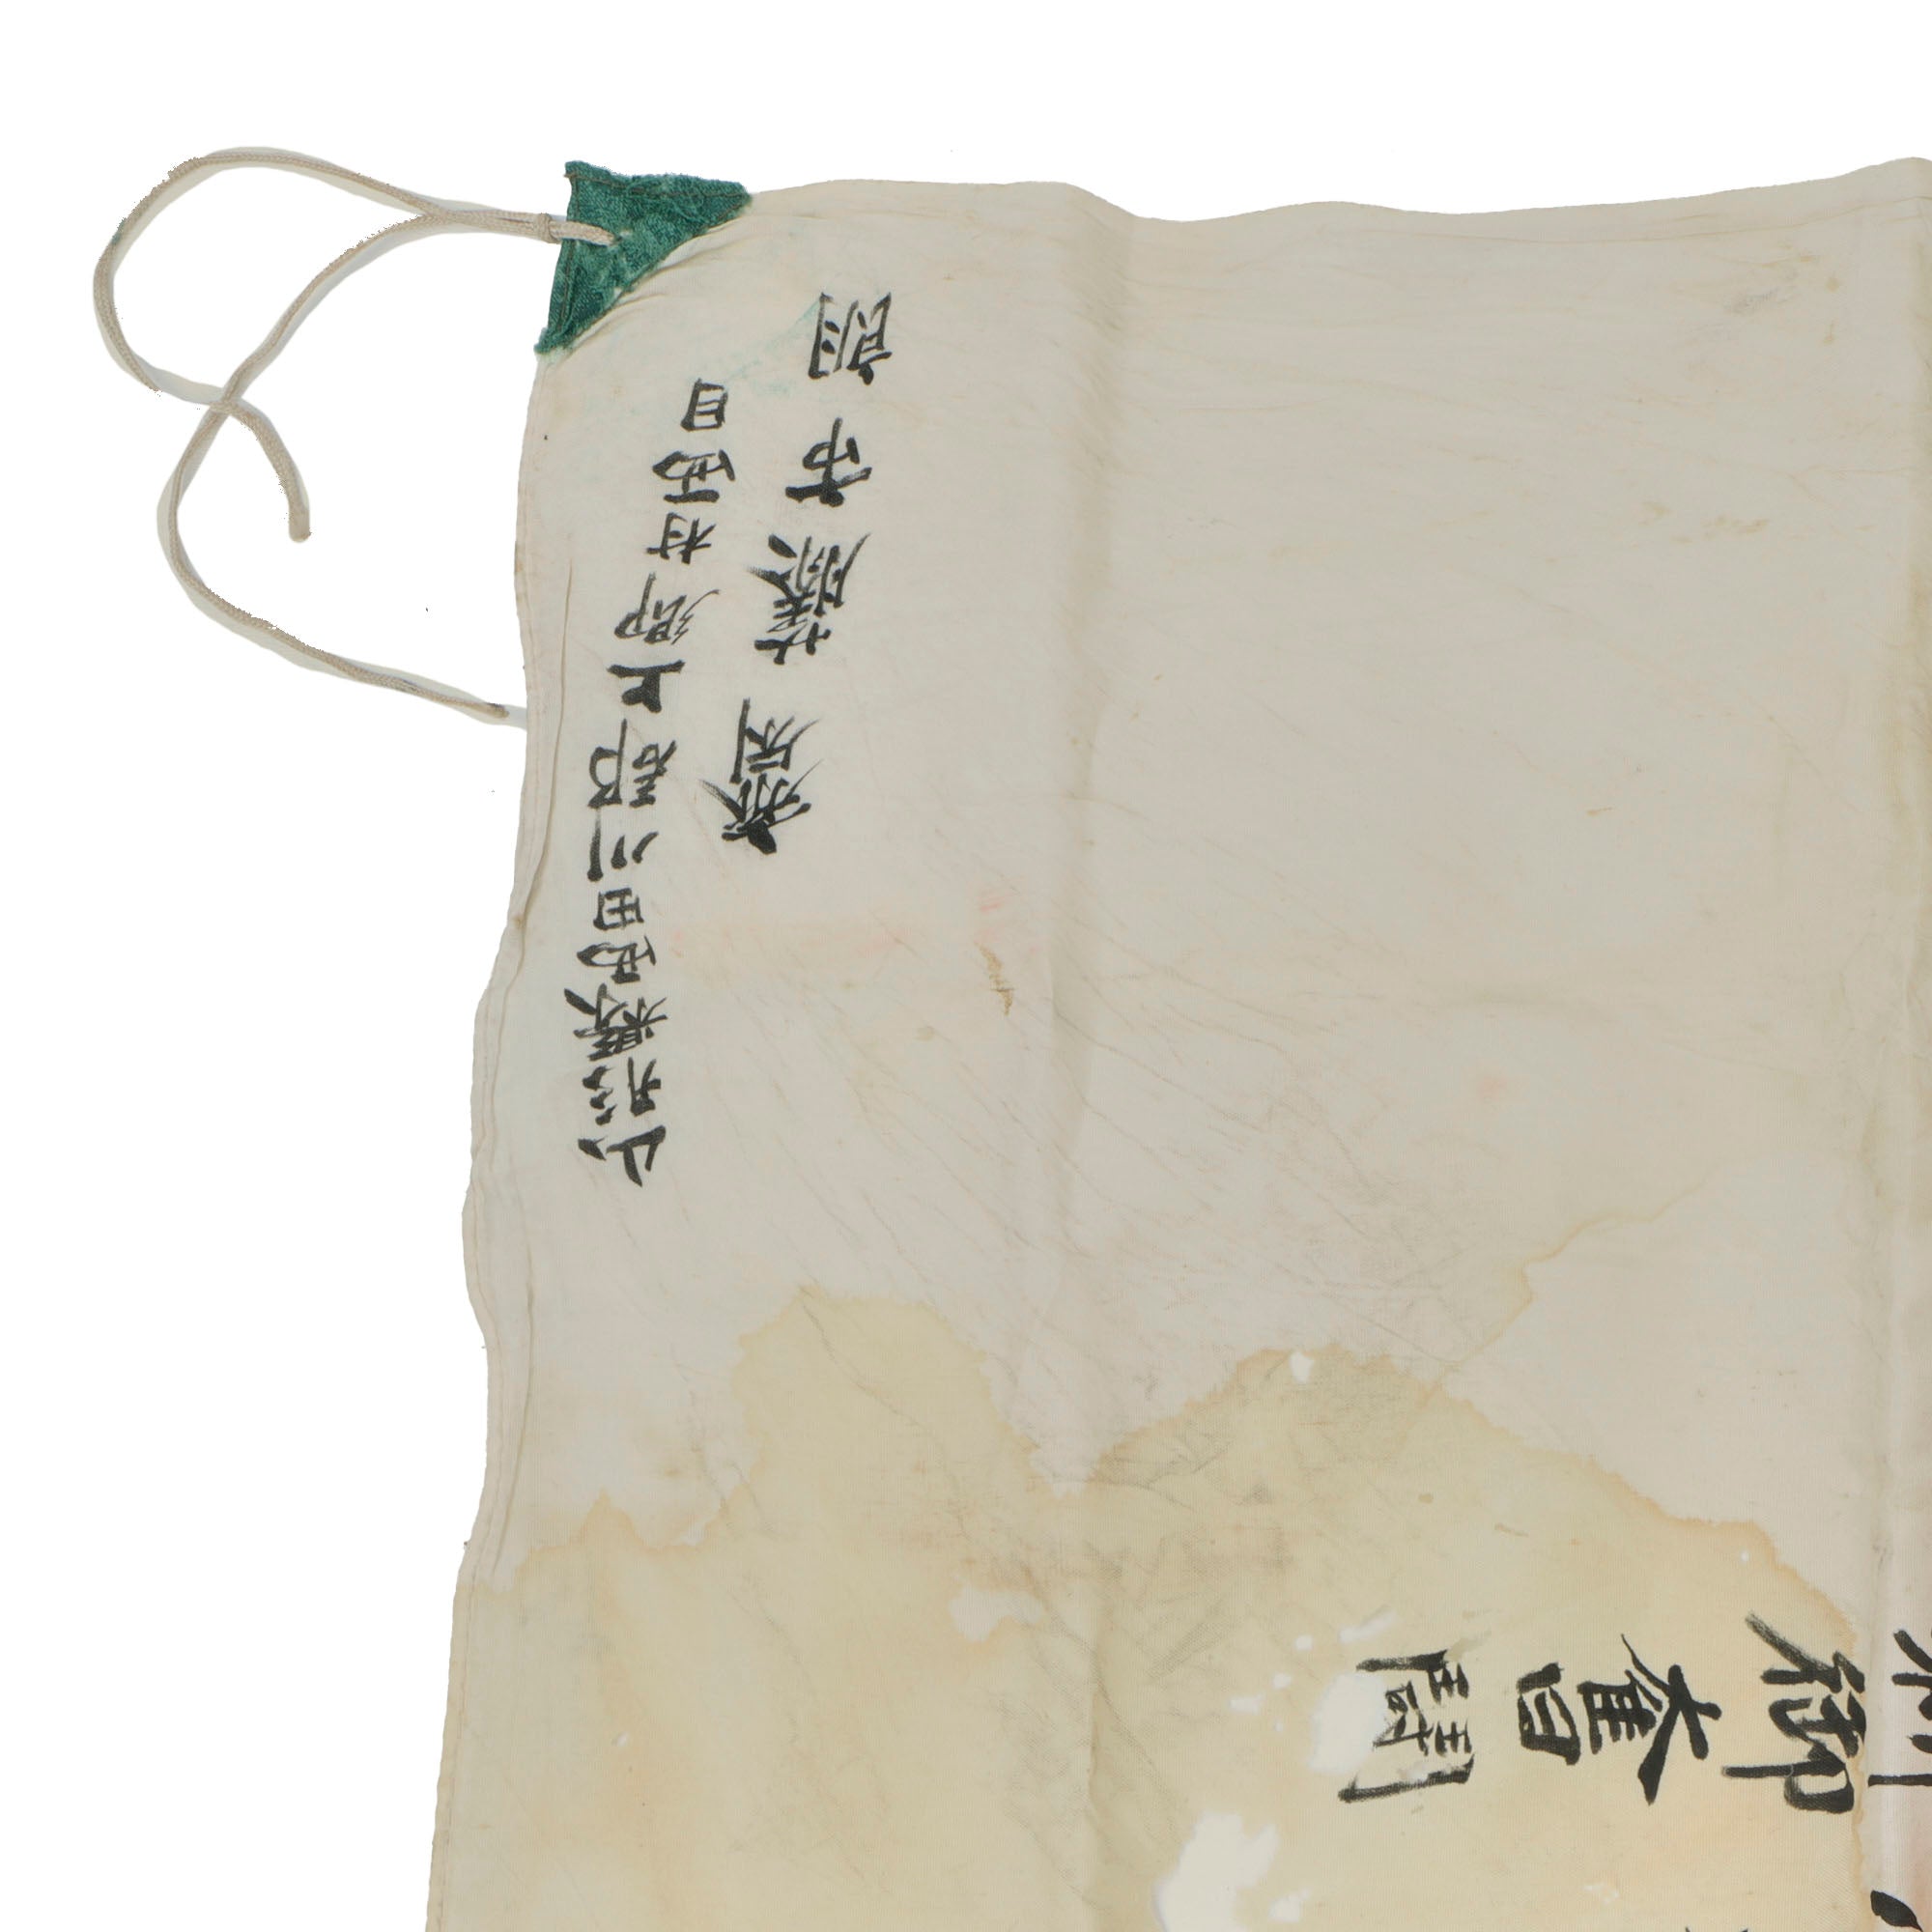 山形縣西田川郡上郷村西目
齋藤市朗
御奮鬪